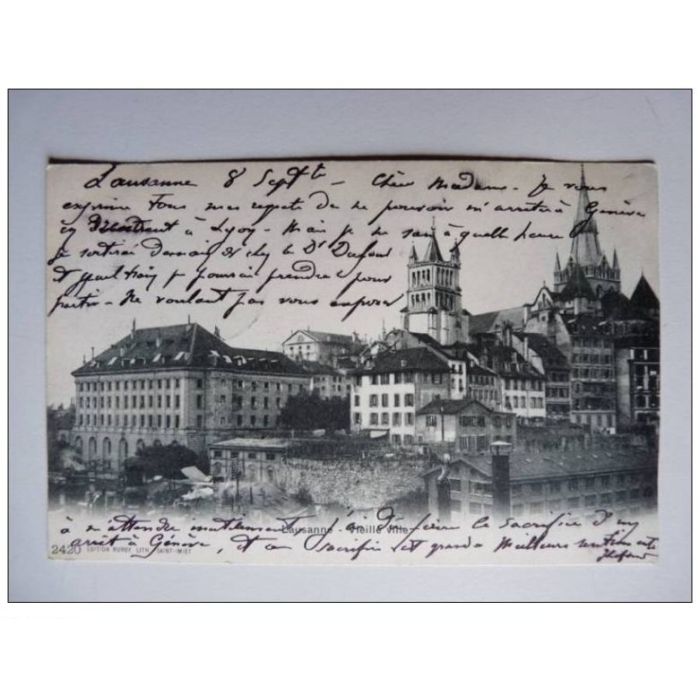 Lausanne 8 Septbe — Chère Madame. Je vous
exprime tous mes regrets de ne pouvoir m'arrêter à Genève
à Lyon. Mais je ne sais à quelle heure
je sortirai demain de chez le Dr Dufour
et quel train je pourrai prendre pour
partir. Ne voulant pas vous exposer
à m'attendre inutilement je dois faire le sacrifice d'un
arrêt à Genève, et ce sacrifice est grand. Meilleurs sentiments
Lausanne - Vieille ville
2420 EDITION BURGY LITH. SAINT-IMIER